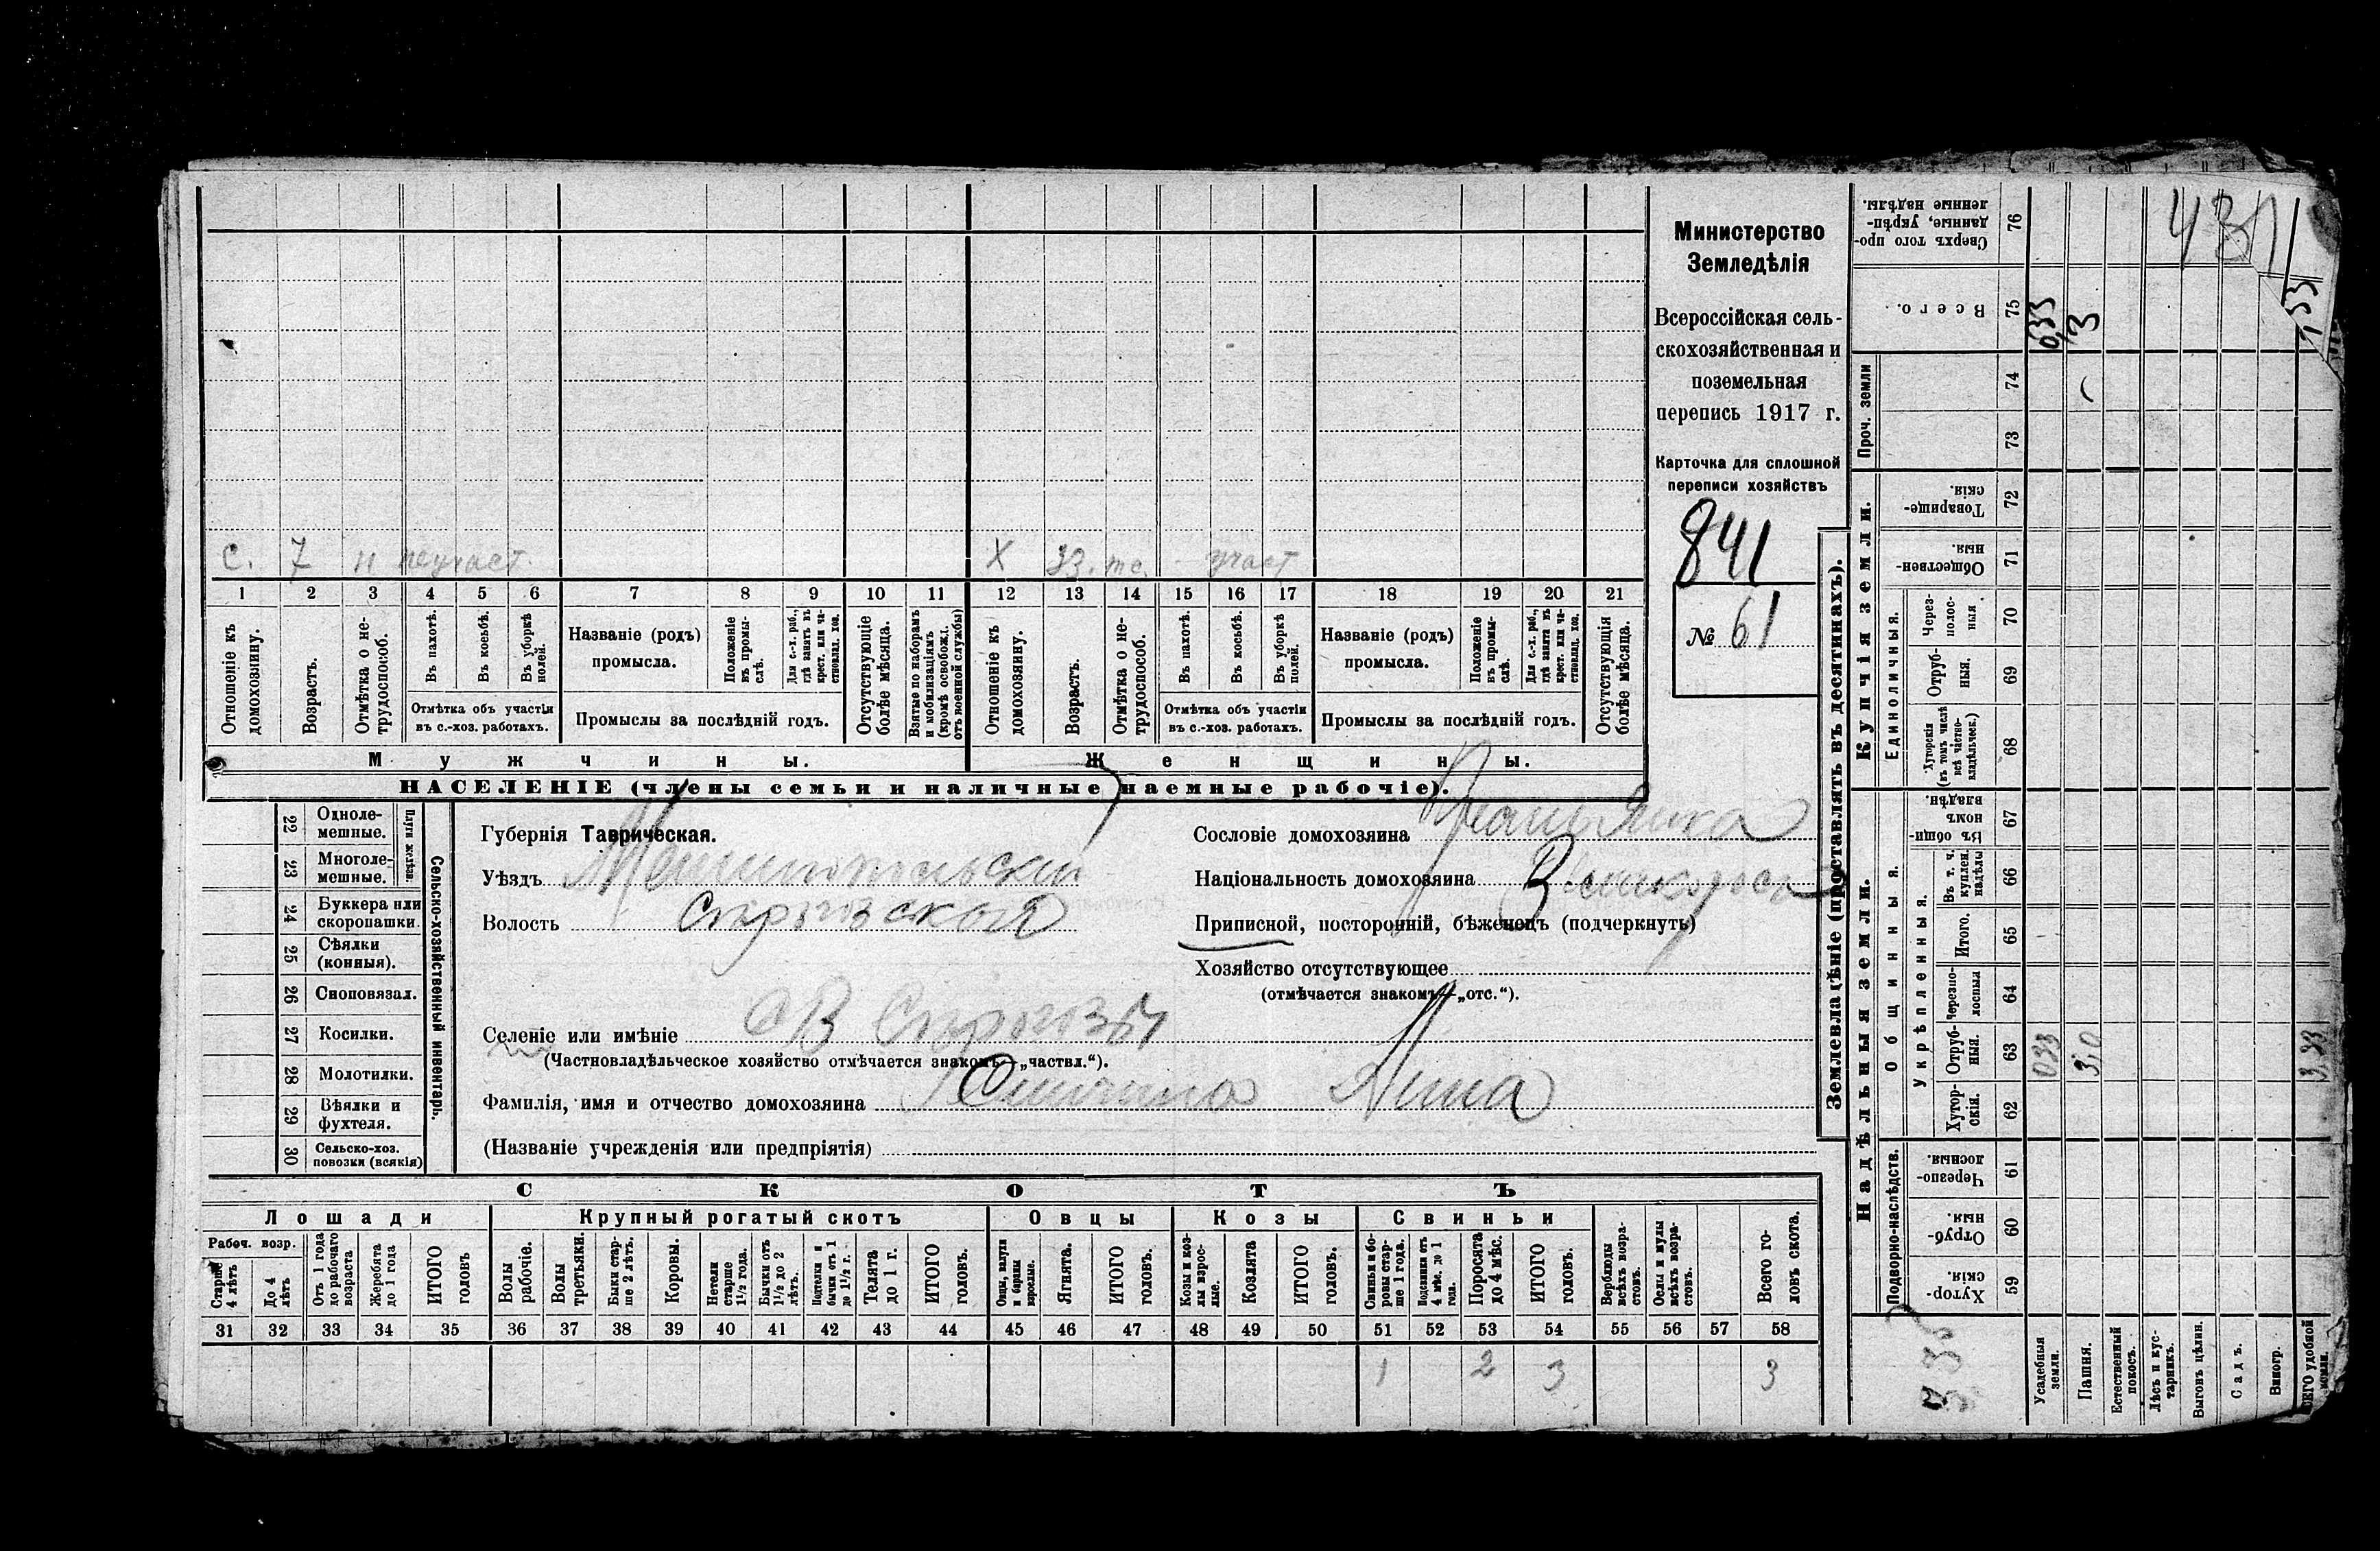 Министерство
Земледѣлія
Всероссійская сель-
скохозяйственная и
поземельная
перепись 1917 г.
Карточка для сплошной
переписи хозяйствъ
841
№ 61
с. 7 н неучаст.
Х 33. участ
1 2 3 4 5 6 7 8 9 10 11 12 13 14 15 16 17 18 19 20 21
Отношеніе къ домохозяину.
Возрастъ.
Отмѣтка о не-трудоспособ.
Въ пахотѣ.
Въ косьбѣ.
Въ уборкѣ полей.
Отмѣтка объ участіи въ с.-хоз. работахъ.
Названіе (родъ) промысла.
Положеніе въ промы-слѣ.
Для с.-х. раб., гдѣ занятъ въ крест. или ча-стновлад. хоз.
Промыслы за послѣдній годъ.
Отсутствующіе болѣе мѣсяца.
Взятые по наборамъ и мобилизаціямъ (кромѣ освобожд. отъ военной службы)
Отношеніе къ домохозяину.
Возрастъ.
Отмѣтка о не-трудоспособ.
Въ пахотѣ.
Въ косьбѣ.
Въ уборкѣ полей.
Отмѣтка объ участіи въ с.-хоз. работахъ.
Названіе (родъ) промысла.
Положеніе въ промы-слѣ.
Для с.-х. раб., гдѣ занята въ крест. или ча-стновлад. хоз.
Промыслы за послѣдній годъ.
Отсутствующія болѣе мѣсяца.
Мужчины. Женщины.
НАСЕЛЕНІЕ (члены семьи и наличные наемные рабочіе).
Сельско-хозяйственный инвентарь.
Плуги желѣзн.
22 Одноле-мешные.
23 Многоле-мешные.
24 Буккера или скоропашки.
25 Сѣялки (конныя).
26 Сноповязал.
27 Косилки.
28 Молотилки.
29 Вѣялки и фухтеля.
30 Сельско-хоз. повозки (всякія)
Губернія Таврическая.
Уѣздъ Мелитопольскій
Волость
Селеніе или имѣніе
(Частновладѣльческое хозяйство отмѣчается знакомъ—„частвл.“).
Фамилія, имя и отчество домохозяина Анна
(Названіе учрежденія или предпріятія)
Сословіе домохозяина Крестьянка
Національность домохозяина Великоросс
Приписной, посторонній, бѣженецъ (подчеркнуть)
Хозяйство отсутствующее
(отмѣчается знакомъ—„отс.“).
СКОТЪ
Лошади Крупный рогатый скотъ Овцы Козы Свиньи
Рабоч. возр.
Старше 4 лѣтъ
До 4 лѣтъ
Отъ 1 года до рабочаго возраста
Жеребята до 1 года
ИТОГО головъ
Волы рабочіе.
Волы третьяки.
Быки стар-ше 2 лѣтъ.
Коровы.
Нетели старше 1½ года.
Бычки отъ 1½ до 2 лѣтъ.
Подтелки и бычки отъ 1 до 1½ г.
Телята до 1 г.
ИТОГО головъ.
Овцы, валухи и бараны взрослые.
Ягнята.
ИТОГО головъ.
Козы и коз-лы взрос-лые.
Козлята
ИТОГО головъ.
Свиньи и бо-ровы стар-ше 1 года.
Подсвинки отъ 4 мѣс. до 1 года.
Поросята до 4 мѣс.
ИТОГО головъ.
Верблюды всѣхъ возра-стовъ.
Ослы и мулы всѣхъ возра-стовъ.
Всего го-ловъ скота.
31 32 33 34 35 36 37 38 39 40 41 42 43 44 45 46 47 48 49 50 51 52 53 54 55 56 57 58
1 2 3 3
Землевладѣніе (проставлять въ десятинахъ).
Надѣльныя земли. Купчія земли. Проч. земли
Подворно-наслѣдств.
Общинныя.
Укрѣпленныя.
Единоличныя.
Хутор-скія. 59
Отруб-ныя. 60
Черезпо-лосныя. 61
Хутор-скія. 62
Отруб-ныя. 63
Черезпо-лосныя 64
Итого. 65
Въ т. ч. куплен. надѣлы 66
Въ общин-номъ владѣн. 67
Хуторскія (въ томъ числѣ всѣ частно-владѣльческ.) 68
Отруб-ныя. 69
Через-полос-ныя 70
Обществен-ныя. 71
Товарище-скія. 72
73
74
Всего. 75
Сверхъ того про-данные, укрѣп-ленные надѣлы. 76
Усадебныя земли. 033 0,33
Пашня. 3,0 3
Естественный покосъ.
Лѣсъ и кус-тарникъ.
Выгонъ цѣлин.
Садъ.
Виногр.
ВСЕГО удобной земли. 3,33